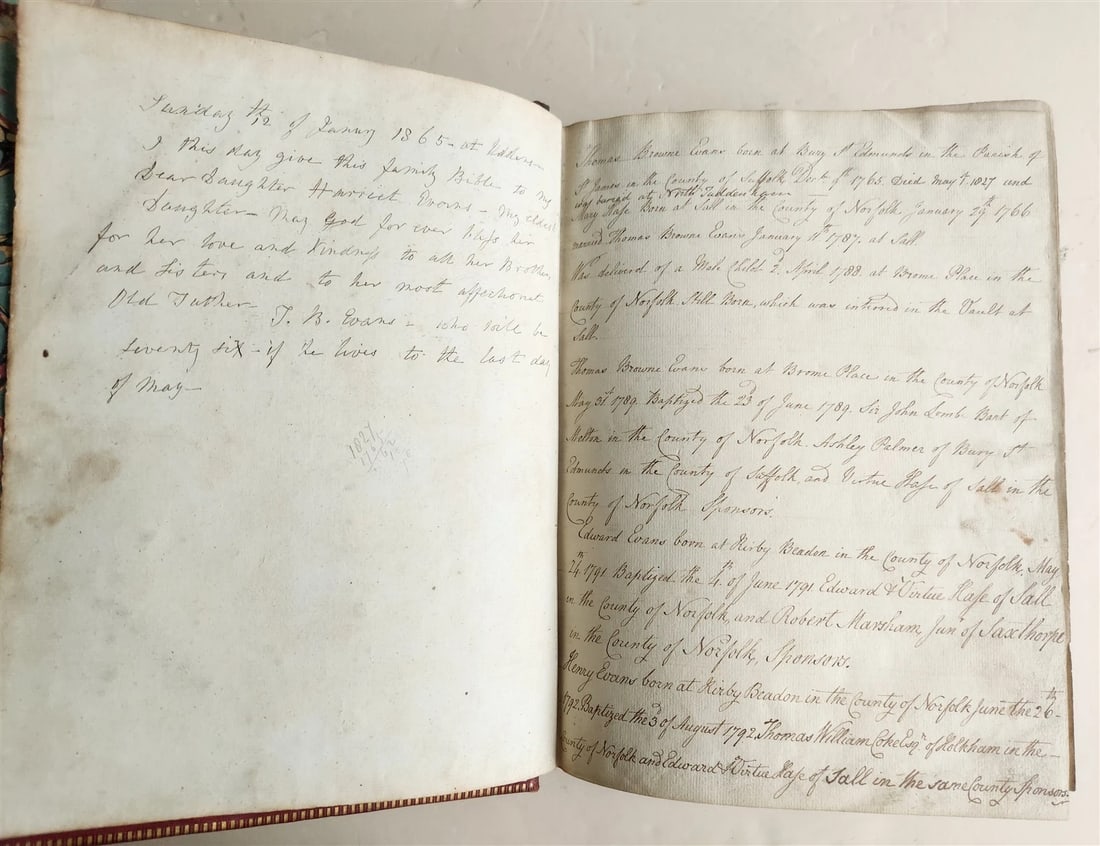 Sunday 12th of Janury 1865 - at
I this day give this family Bible to my
Dear Daughter Harriet Evans - my eldest
Daughter - May God for ever bless her
for her love and Kindness to all her Brothers
and Sisters and to her most affectionat
Old Father - T. B. Evans - who will be
seventy six - if he lives to the last day
of May -
1827
Thomas Browne Evans born at Bury St Edmunds in the Parish of
St James in the County of Suffolk 1765. Died May 1827 and
was buried at North Tuddenham
Mary Hase Born at Sall in the County of Norfolk, January 29th 1766
married Thomas Browne Evans January 11th 1787. at Sall
Was deliverd of a Male Child 2d April 1788 at Brome Place in the
County of Norfolk Still Born, which was interred in the Vault at
Sall.
Thomas Browne Evans born at Brome Place in the County of Norfolk
May 31st 1789. Baptized the 23d of June 1789. Sir John Lombe Bart of
Melton in the County of Norfolk Ashley Palmer of Bury St
Edmunds in the County of Suffolk, and Virtue Hase of Sall in the
County of Norfolk Sponsors.
Edward Evans born at Kirby Beadon in the County of Norfolk, May
24th 1791 Baptized the 4th of June 1791 Edward & Virtue Hase of Sall
in the County of Norfolk, and Robert Marsham, Junr of Saxthorpe
in the County of Norfolk, Sponsors.
Henry Evans born at Kirby Beadon in the County of Norfolk June the 26th -
1792. Baptized the 3d of August 1792. Thomas William Coke Esqr of Holkham in the -
County of Norfolk and Edward & Virtue Hase of Sall in the same County Sponsors.